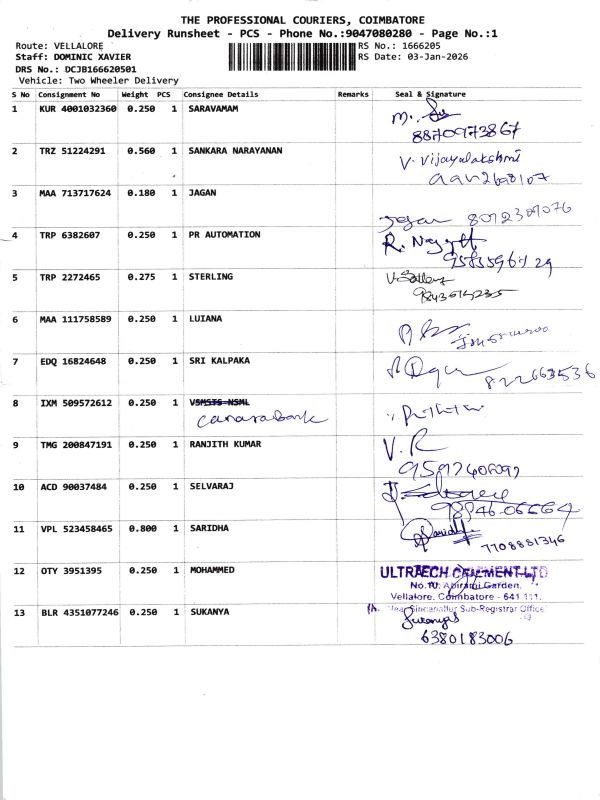 THE PROFESSIONAL COURIERS, COIMBATORE
Delivery Runsheet - PCS - Phone No.:9047080280 - Page No.:1
Route: VELLALORE RS No.: 1666205
Staff: DOMINIC XAVIER RS Date: 03-Jan-2026
DRS No.: DCJB166620501
Vehicle: Two Wheeler Delivery
S No Consignment No Weight PCS Consignee Details Remarks Seal & Signature
1 KUR 4001032360 0.250 1 SARAVAMAM
8870973867
2 TRZ 51224291 0.560 1 SANKARA NARAYANAN V. Vijayalakshmi
3 MAA 713717624 0.180 1 JAGAN
4 TRP 6382607 0.250 1 PR AUTOMATION
5 TRP 2272465 0.275 1 STERLING
6 MAA 111758589 0.250 1 LUIANA
7 EDQ 16824648 0.250 1 SRI KALPAKA
8 IXM 509572612 0.250 1 VSMSTS NSML
canara bank
9 TMG 200847191 0.250 1 RANJITH KUMAR V. R
10 ACD 90037484 0.250 1 SELVARAJ
98946 06664
11 VPL 523458465 0.800 1 SARIDHA
7708881346
12 OTY 3951395 0.250 1 MOHAMMED ULTRAECH CEMENT LTD
No.10, Abirami Garden,
Vellalore, Coimbatore - 641 111.
Near Singanallur Sub-Registrar Office
13 BLR 4351077246 0.250 1 SUKANYA Sukanya
6380183006